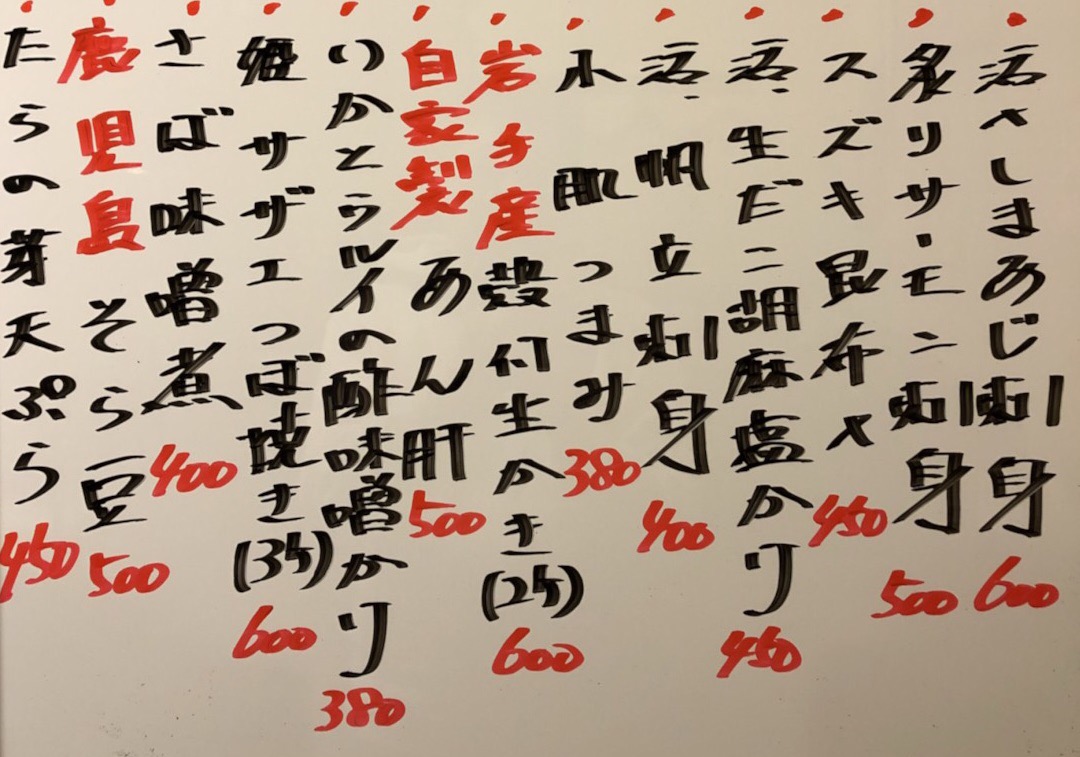 活〆しまあじ刺身 600
炙りサーモン刺身 500
スズキ昆布〆 450
活〆生だこ胡麻塩かけ 450
活〆帆立刺身 400
小肌つまみ 380
岩手産殻付生かき(2ケ) 600
自家製あん肝 500
いかとウルイの酢味噌かけ 380
姫サザエつぼ焼き(3ケ) 600
さば味噌煮 400
鹿児島そら豆 500
たらの芽天ぷら 450